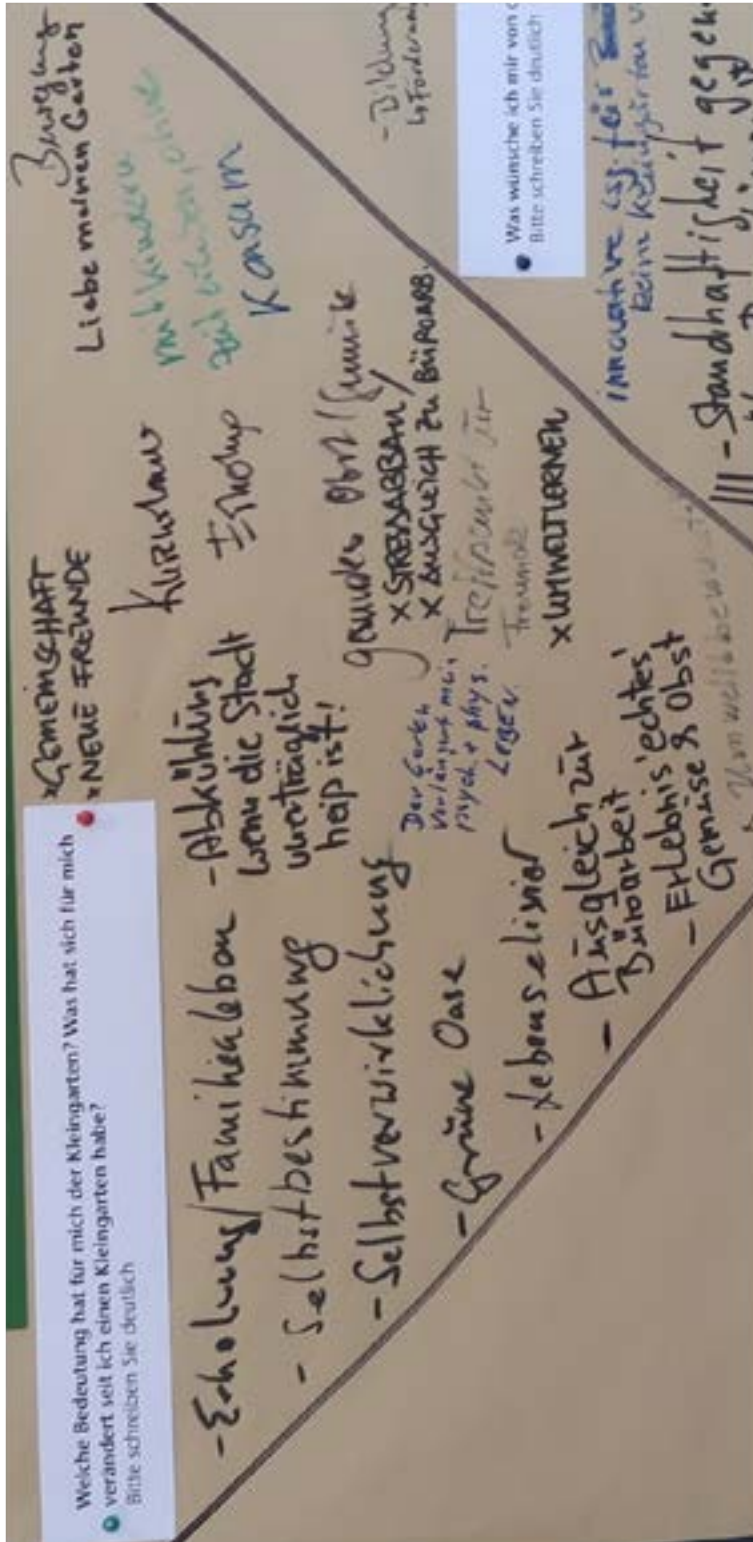 Welche Bedeutung hat für mich der Kleingarten? Was hat sich für mich
verändert seit ich einen Kleingarten habe?
Bitte schreiben Sie deutlich
- Erholung/Familienleben
- Selbstbestimmung
- Selbstverwirklichung
- Grüne Oase
- Lebenselixier
- Ausgleich zur
Büroarbeit
- Erlebnis 'echtes'
Gemüse & Obst
Umweltbewusster
x GEMEINSCHAFT
x NEUE FREUNDE
- Abkühlung
wenn die Stadt
unerträglich
heiß ist!
Der Garten
verlängert mein
psych. + phys.
LEBEN
Kurzurlaub
Erholung
gesundes Obst/Gemüse
x STRESSABBAU
x AUSGLEICH ZU BÜROARB.
Treffpunkt für
Freunde
x UMWELTLERNEN
Bewegung
Liebe meinen Garten
mit Kindern
Zeit ohne
Konsum
- Bildung
↳ Förderung
Was wünsche ich mir von
Bitte schreiben Sie deutlich
innovative Lsg. für
keine Kleingärten
||| - Standhaftigkeit gegen